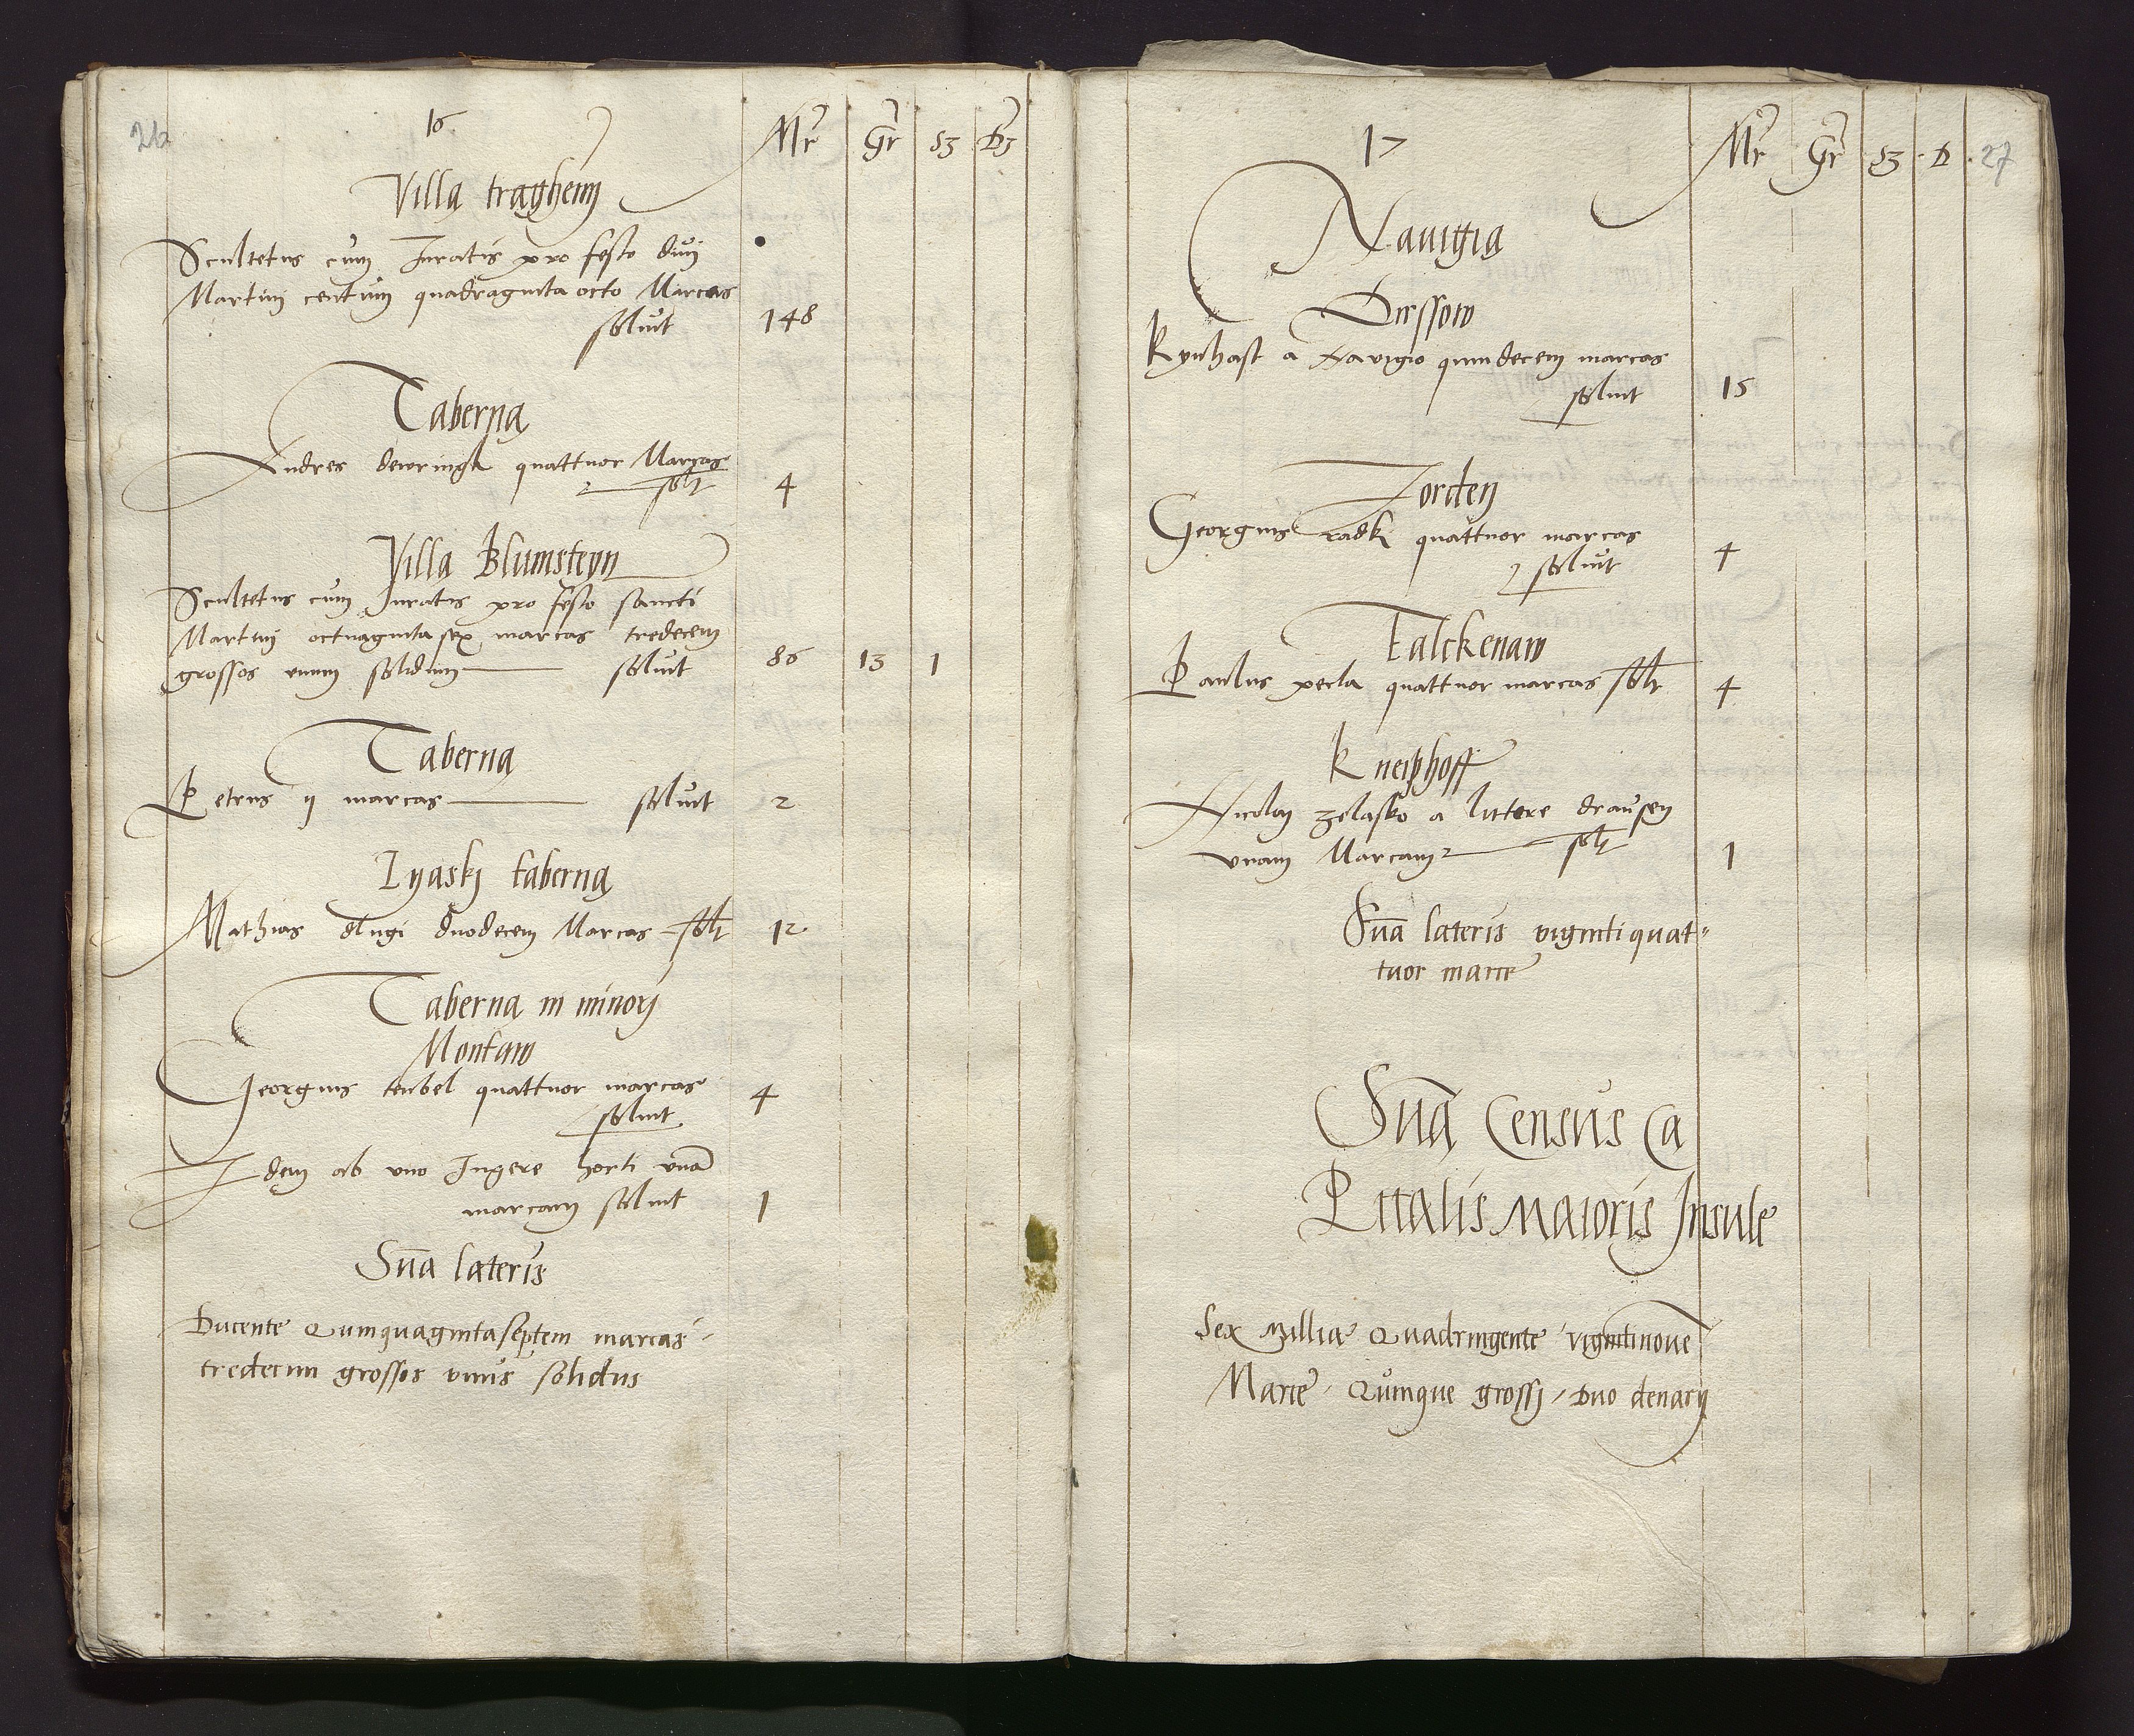 26
16
Mr Gr ss D
Villa traghenn
Scultetus cum Iuratis pro festo diui
Martini centum quadraginta octo Marcas
soluit 148
Taberna
Andres quattuor Marcas
solt 4
Villa Blumsteyn
Scultetus cum Iuratis pro festo sancti
Martini octuaginta sex marcas tredecem
grossos unum solidum soluit 86 13 1
Taberna
Petrus ij marcas soluit 2
Lyaskj taberna
Mathias dlugi duodecem Marcas solt 12
Taberna in minorj
Montaw
Georgius teubel quattuor marcas 4
soluit
Idem ab uno Iugere horti vnā
marcam soluit 1
Sūa lateris
Ducente Quinquagintaseptem marcas
tredecim grossos vnus solidus
17
27
Mr Gr ss D
Nauigia
Dirssow
Kynhast a Nauigio quindecem marcas
soluit 15
Forden
Georgius radk quattuor marcas
soluit 4
Falckenaw
Paulus pecla quattuor marcas solt 4
Kneiphoff
Nicolay zelasko a littere drausen
vnam Marcam solt 1
Sūa lateris vigintiquat"
tuor marce
Sūa Census Ca
Pitalis Maioris Insule
Sex Millia Quadringente vigintinoue
Marce Quinque grossj Duo denarij